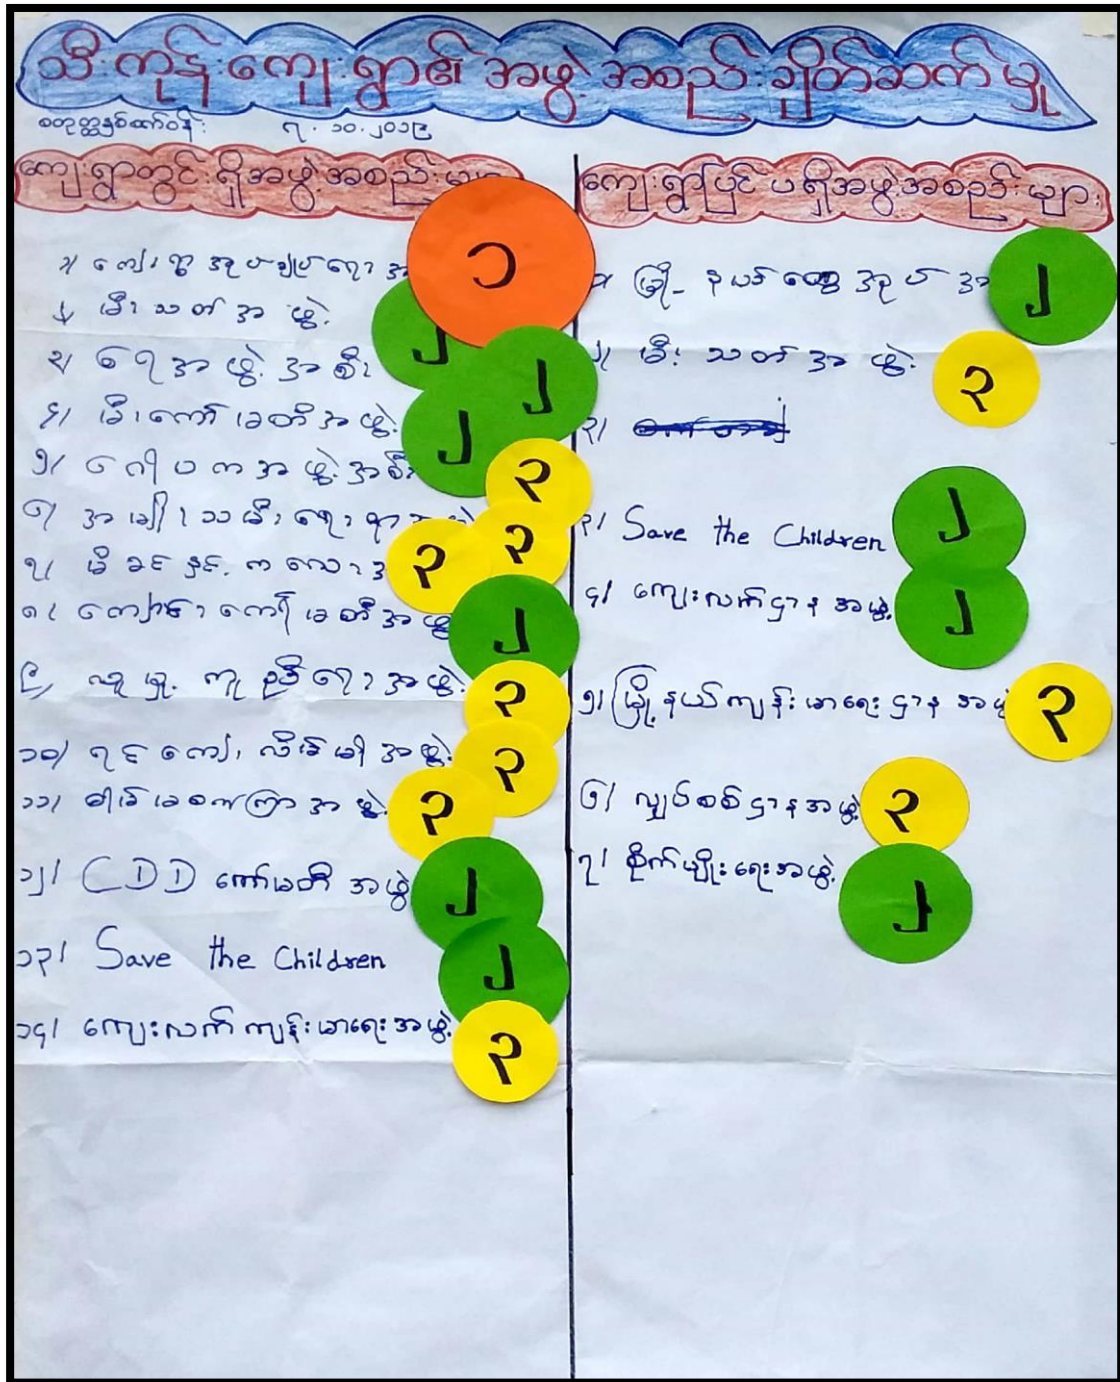 သီးကုန်းကျေးရွာ၏ အဖွဲ့အစည်းချိတ်ဆက်မှု
စတုတ္ထနှစ်ထက်ဝန်း ၇.၁၀.၂၀၁၉
ကျေးရွာတွင်းရှိအဖွဲ့အစည်းများ
၁။ ကျေးရွာအုပ်ချုပ်ရေးအ ၁
၂။ မီးသတ်အဖွဲ့ ၂
၃။ ရေအဖွဲ့အစီး ၂
၄။ မီးကော်မတီအဖွဲ့ ၂
၅။ ဂေါပကအဖွဲ့အစီး ၃
၆။ အမျိုးသမီးရေးရာ ၃
၇။ မိခင်နှင့်ကလေး ၃
၈။ ကျောင်းကော်မတီအဖွဲ့ ၂
၉။ လူမှုကူညီရေးအဖွဲ့ ၃
၁၀။ ရင်ကျေးလိမ်မာအဖွဲ့ ၃
၁၁။ အဖွဲ့ ၃
၁၂။ CDD ကော်မတီ အဖွဲ့ ၂
၁၃။ Save the Children ၂
၁၄။ ကျေးလက်ကျန်းမာရေးအဖွဲ့ ၃
ကျေးရွာပြင်ပရှိအဖွဲ့အစည်းများ
၁။ မြို့နယ်ထွေအုပ်အ ၂
၂။ မီးသတ်အဖွဲ့ ၃
၃။
၃။ Save the Children ၂
၄။ ကျေးလက်ဌာနအဖွဲ့ ၂
၅။ မြို့နယ်ကျန်းမာရေးဌာနအဖွဲ့ ၃
၆။ လျှပ်စစ်ဌာနအဖွဲ့ ၃
၇။ စိုက်ပျိုးရေးအဖွဲ့ ၂